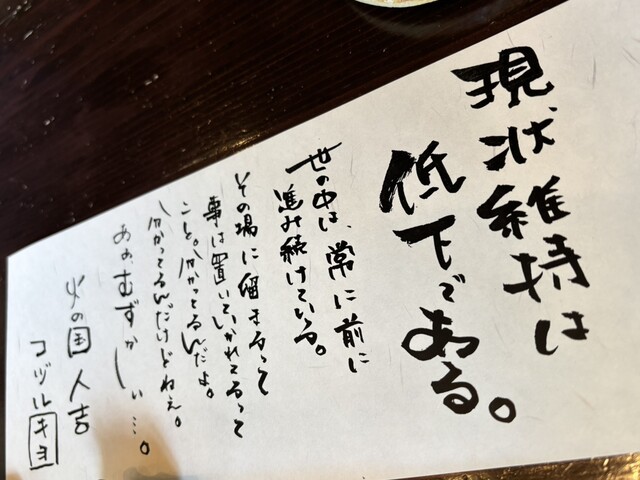 現状維持は
低下である。
世の中は、常に前に
進み続けている。
その場に留まるって
事は置いていかれてるって
こと。分かってるんだよ。
分かってるんだけどねぇ。
あぁむずかしい…。
火の国 人吉
コヅル キヨ